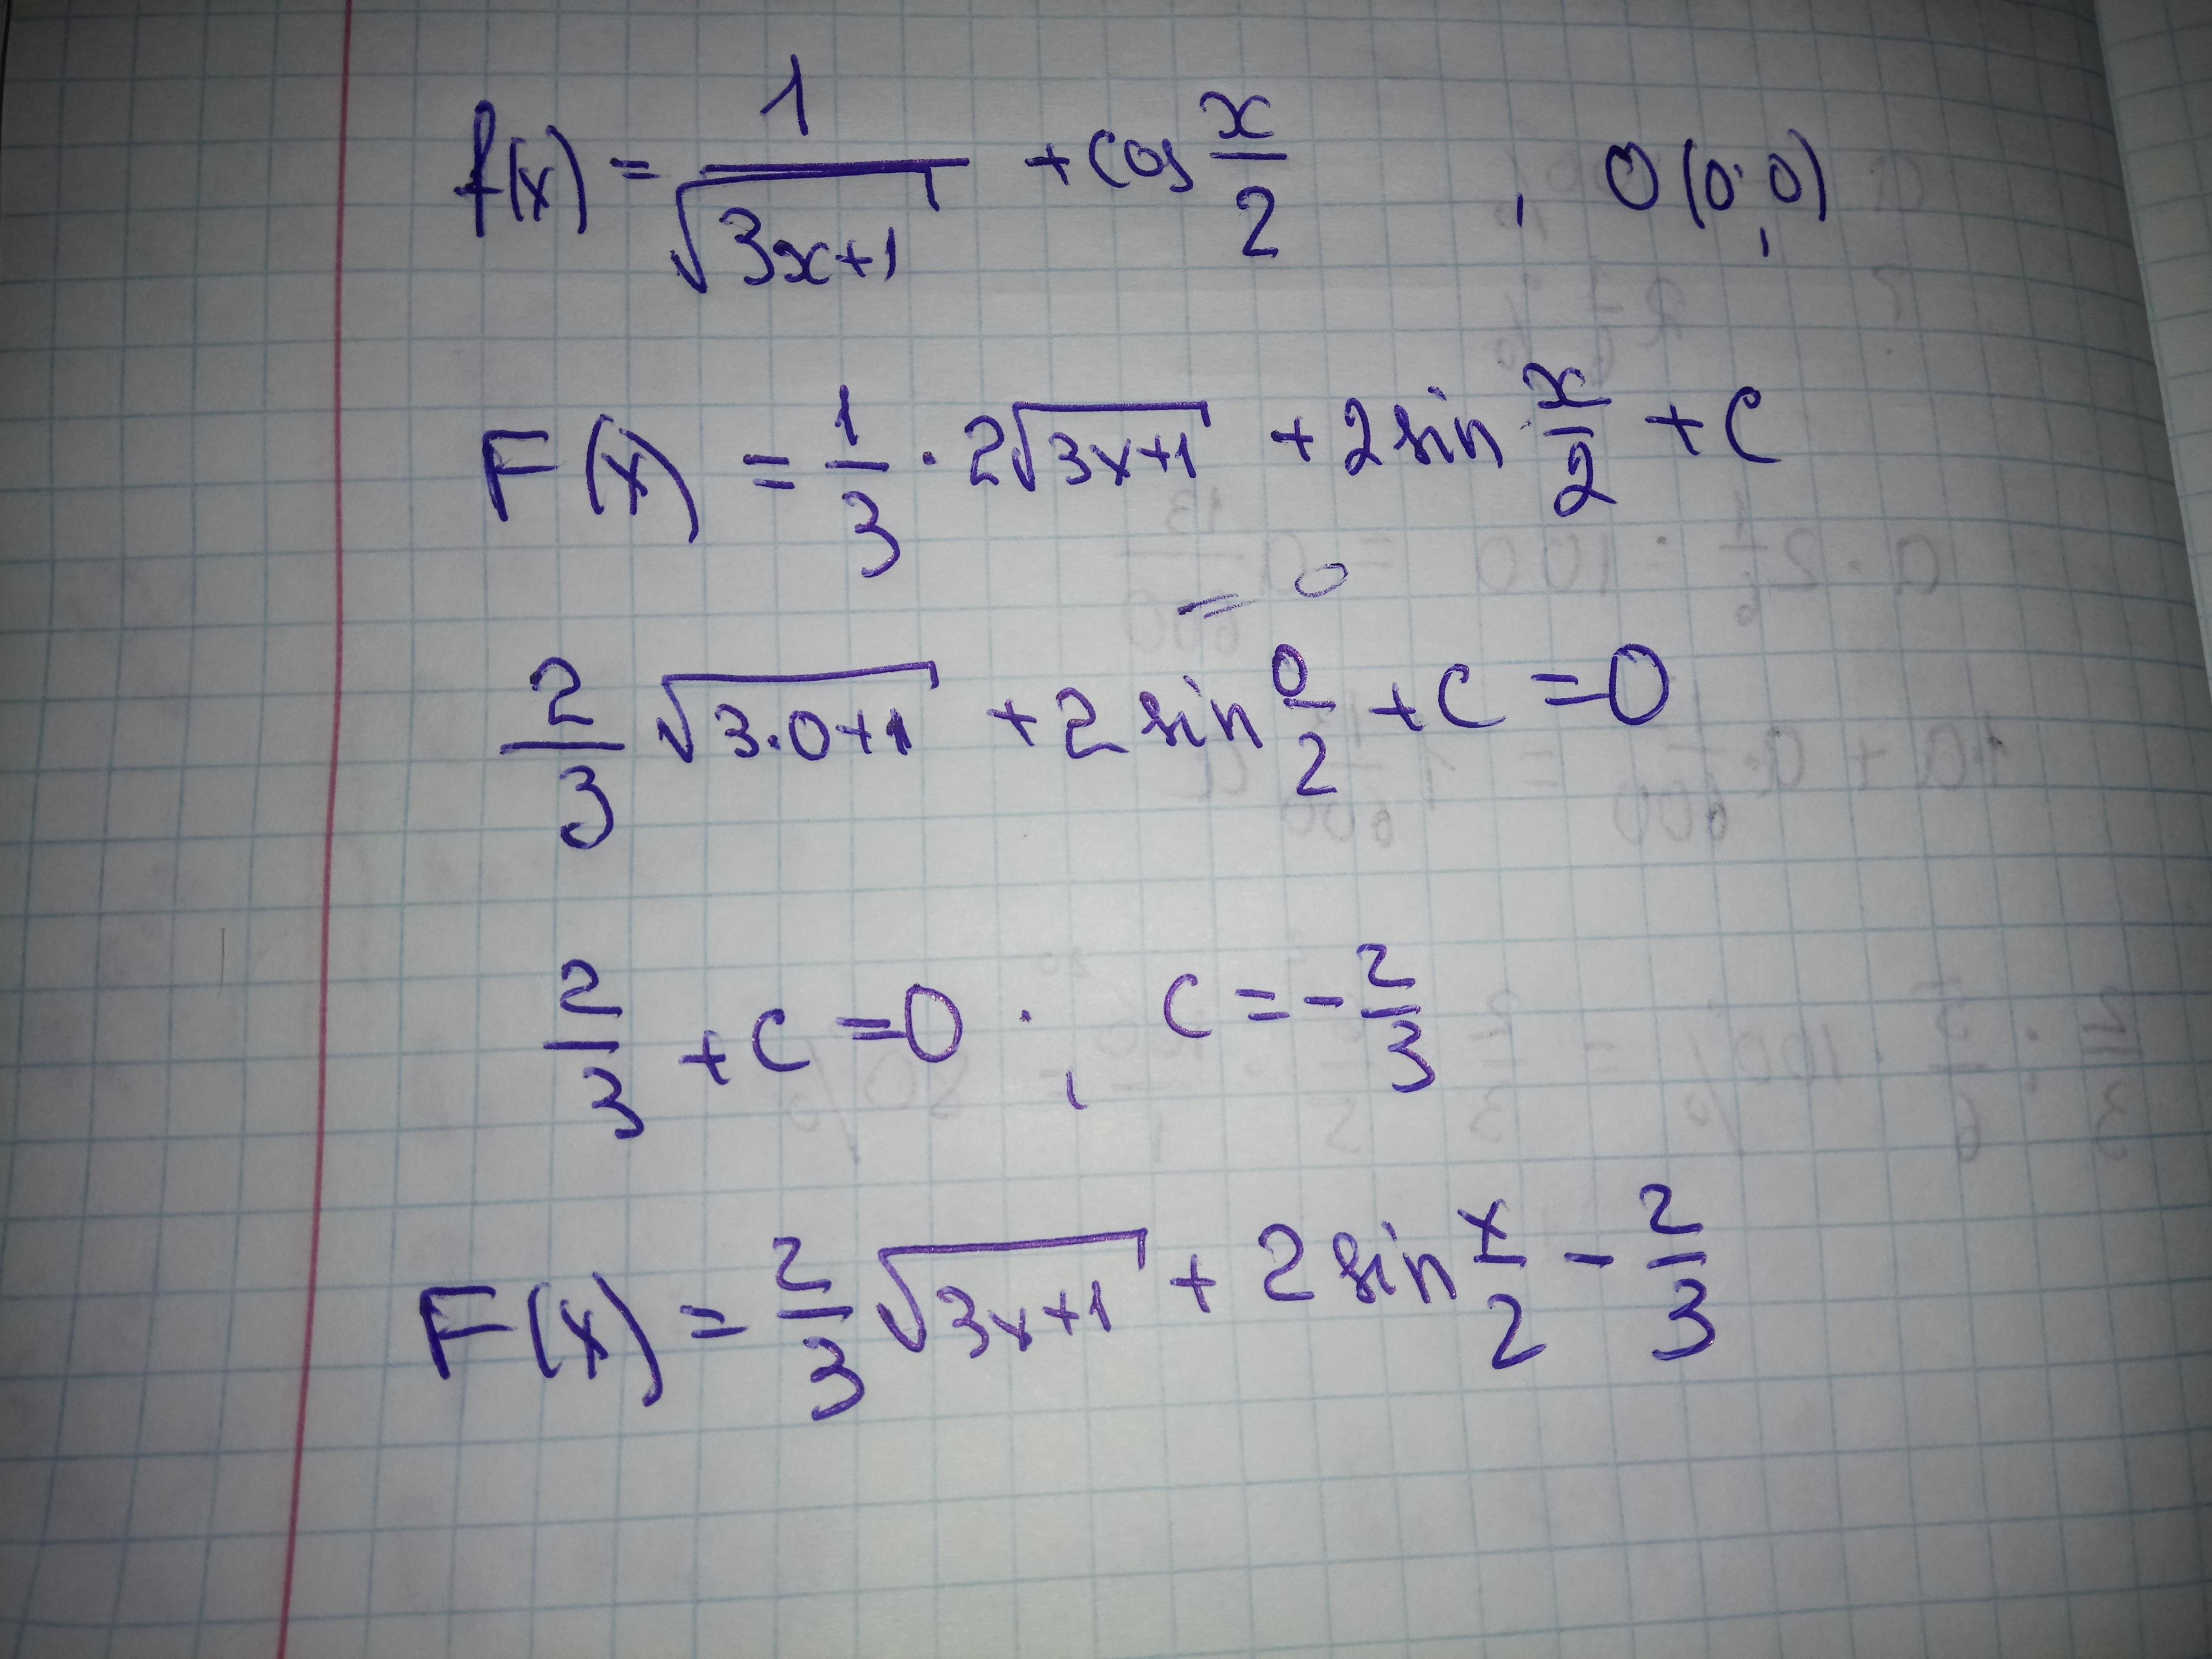 f(x) = 1/√(3x+1) + cos x/2 , O(0;0)
F(x) = 1/3 · 2√(3x+1) + 2 sin x/2 + C
= 0
2/3 √(3·0+1) + 2 sin 0/2 + C = 0
2/3 + C = 0 ; C = -2/3
F(x) = 2/3 √(3x+1) + 2 sin x/2 - 2/3